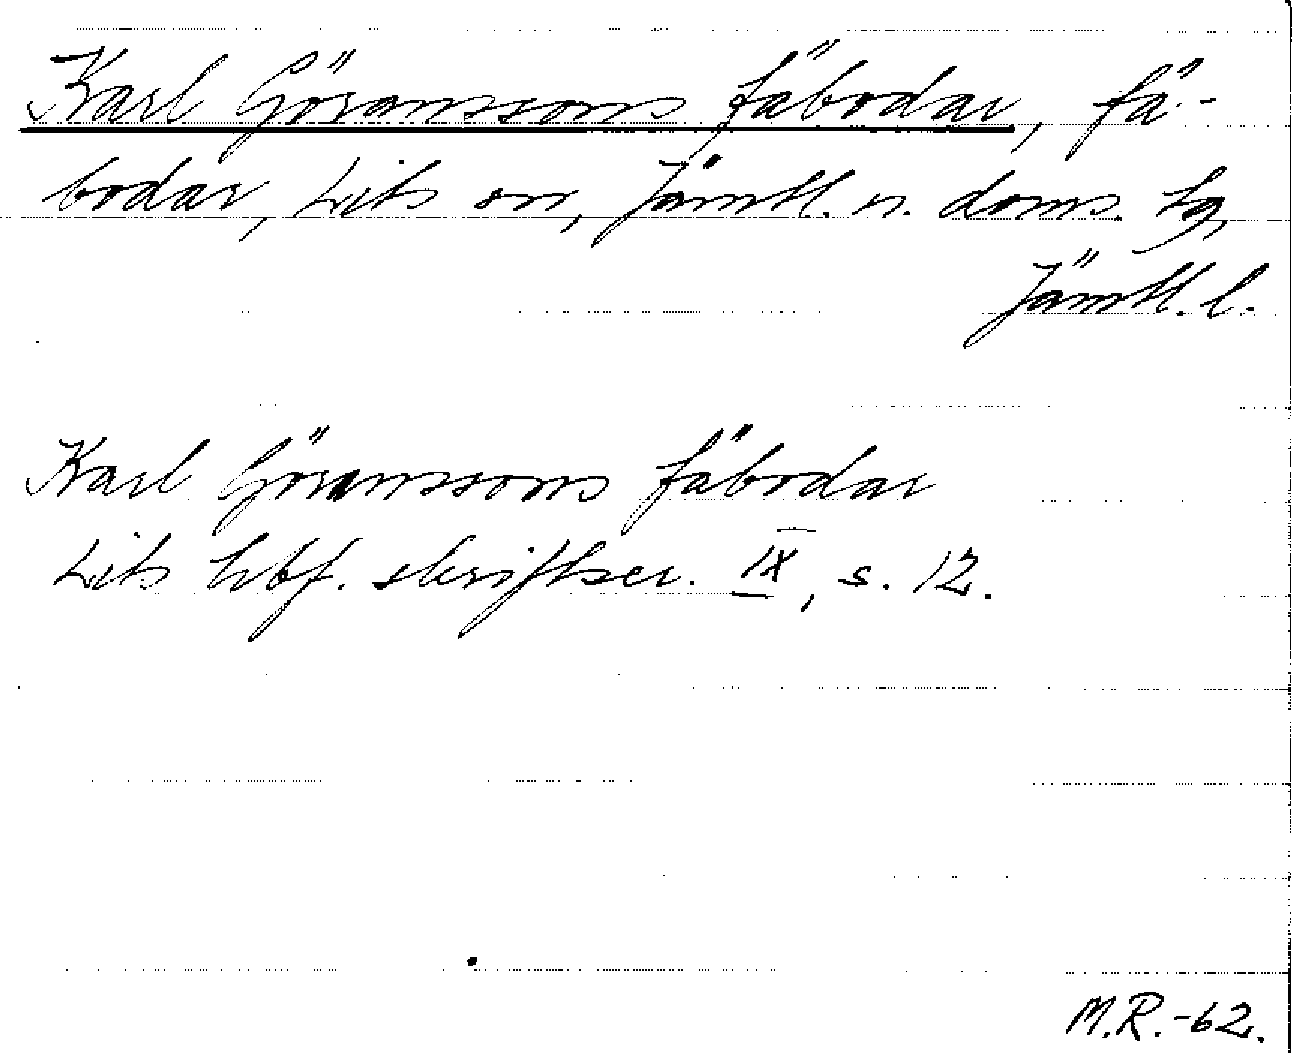 Karl Göranssons fäbodar, fä-
bodar, Lits sn, Jämtl. n. doms. tg,
Jämtl. l.
Karl Göranssons fäbodar
Lits hbf. skriftser. IX, s. 12.
M.R.-62.